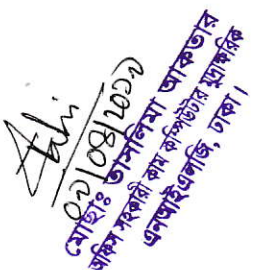 ০২/০৪/২০১৩
মোছাঃ তাসলিমা আকতার
অফিস সহকারী কাম কম্পিউটার মুদ্রাক্ষরিক
এনআইএলজি, ঢাকা।